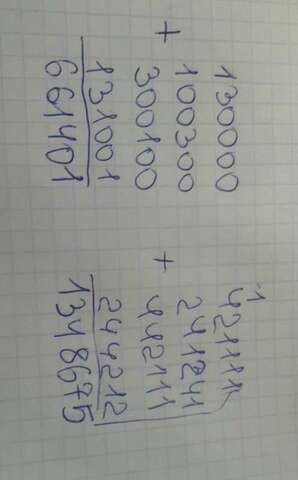 130000
100300
+
300100
131001
661401
1
421111
241241
+
442111
244212
1348675